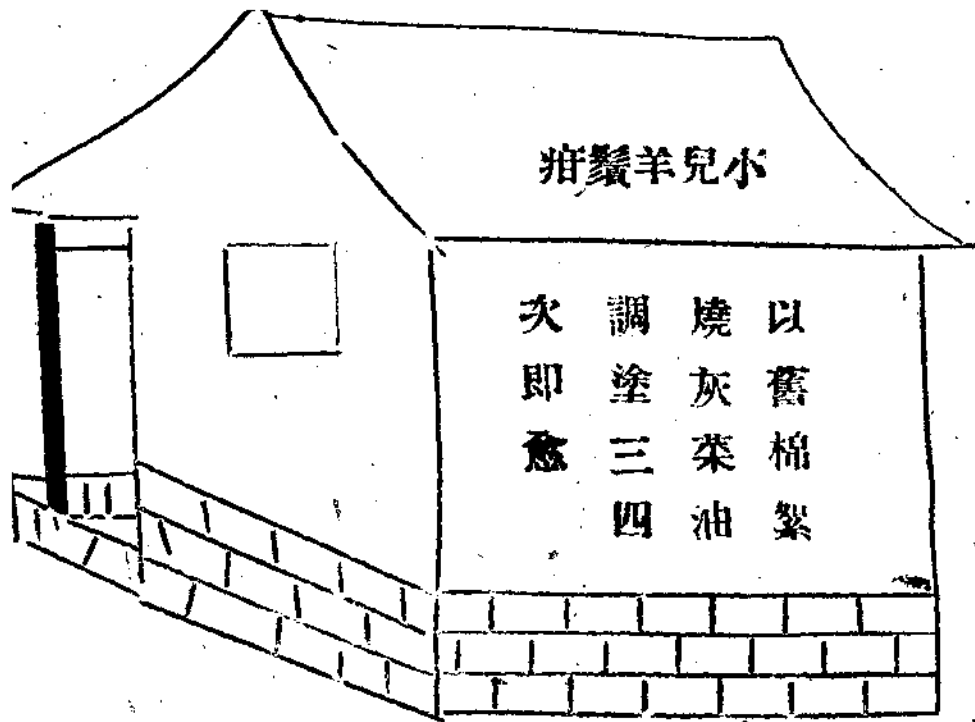 小兒羊鬚疳
以舊棉絮
燒灰菜油
調塗三四
次即愈